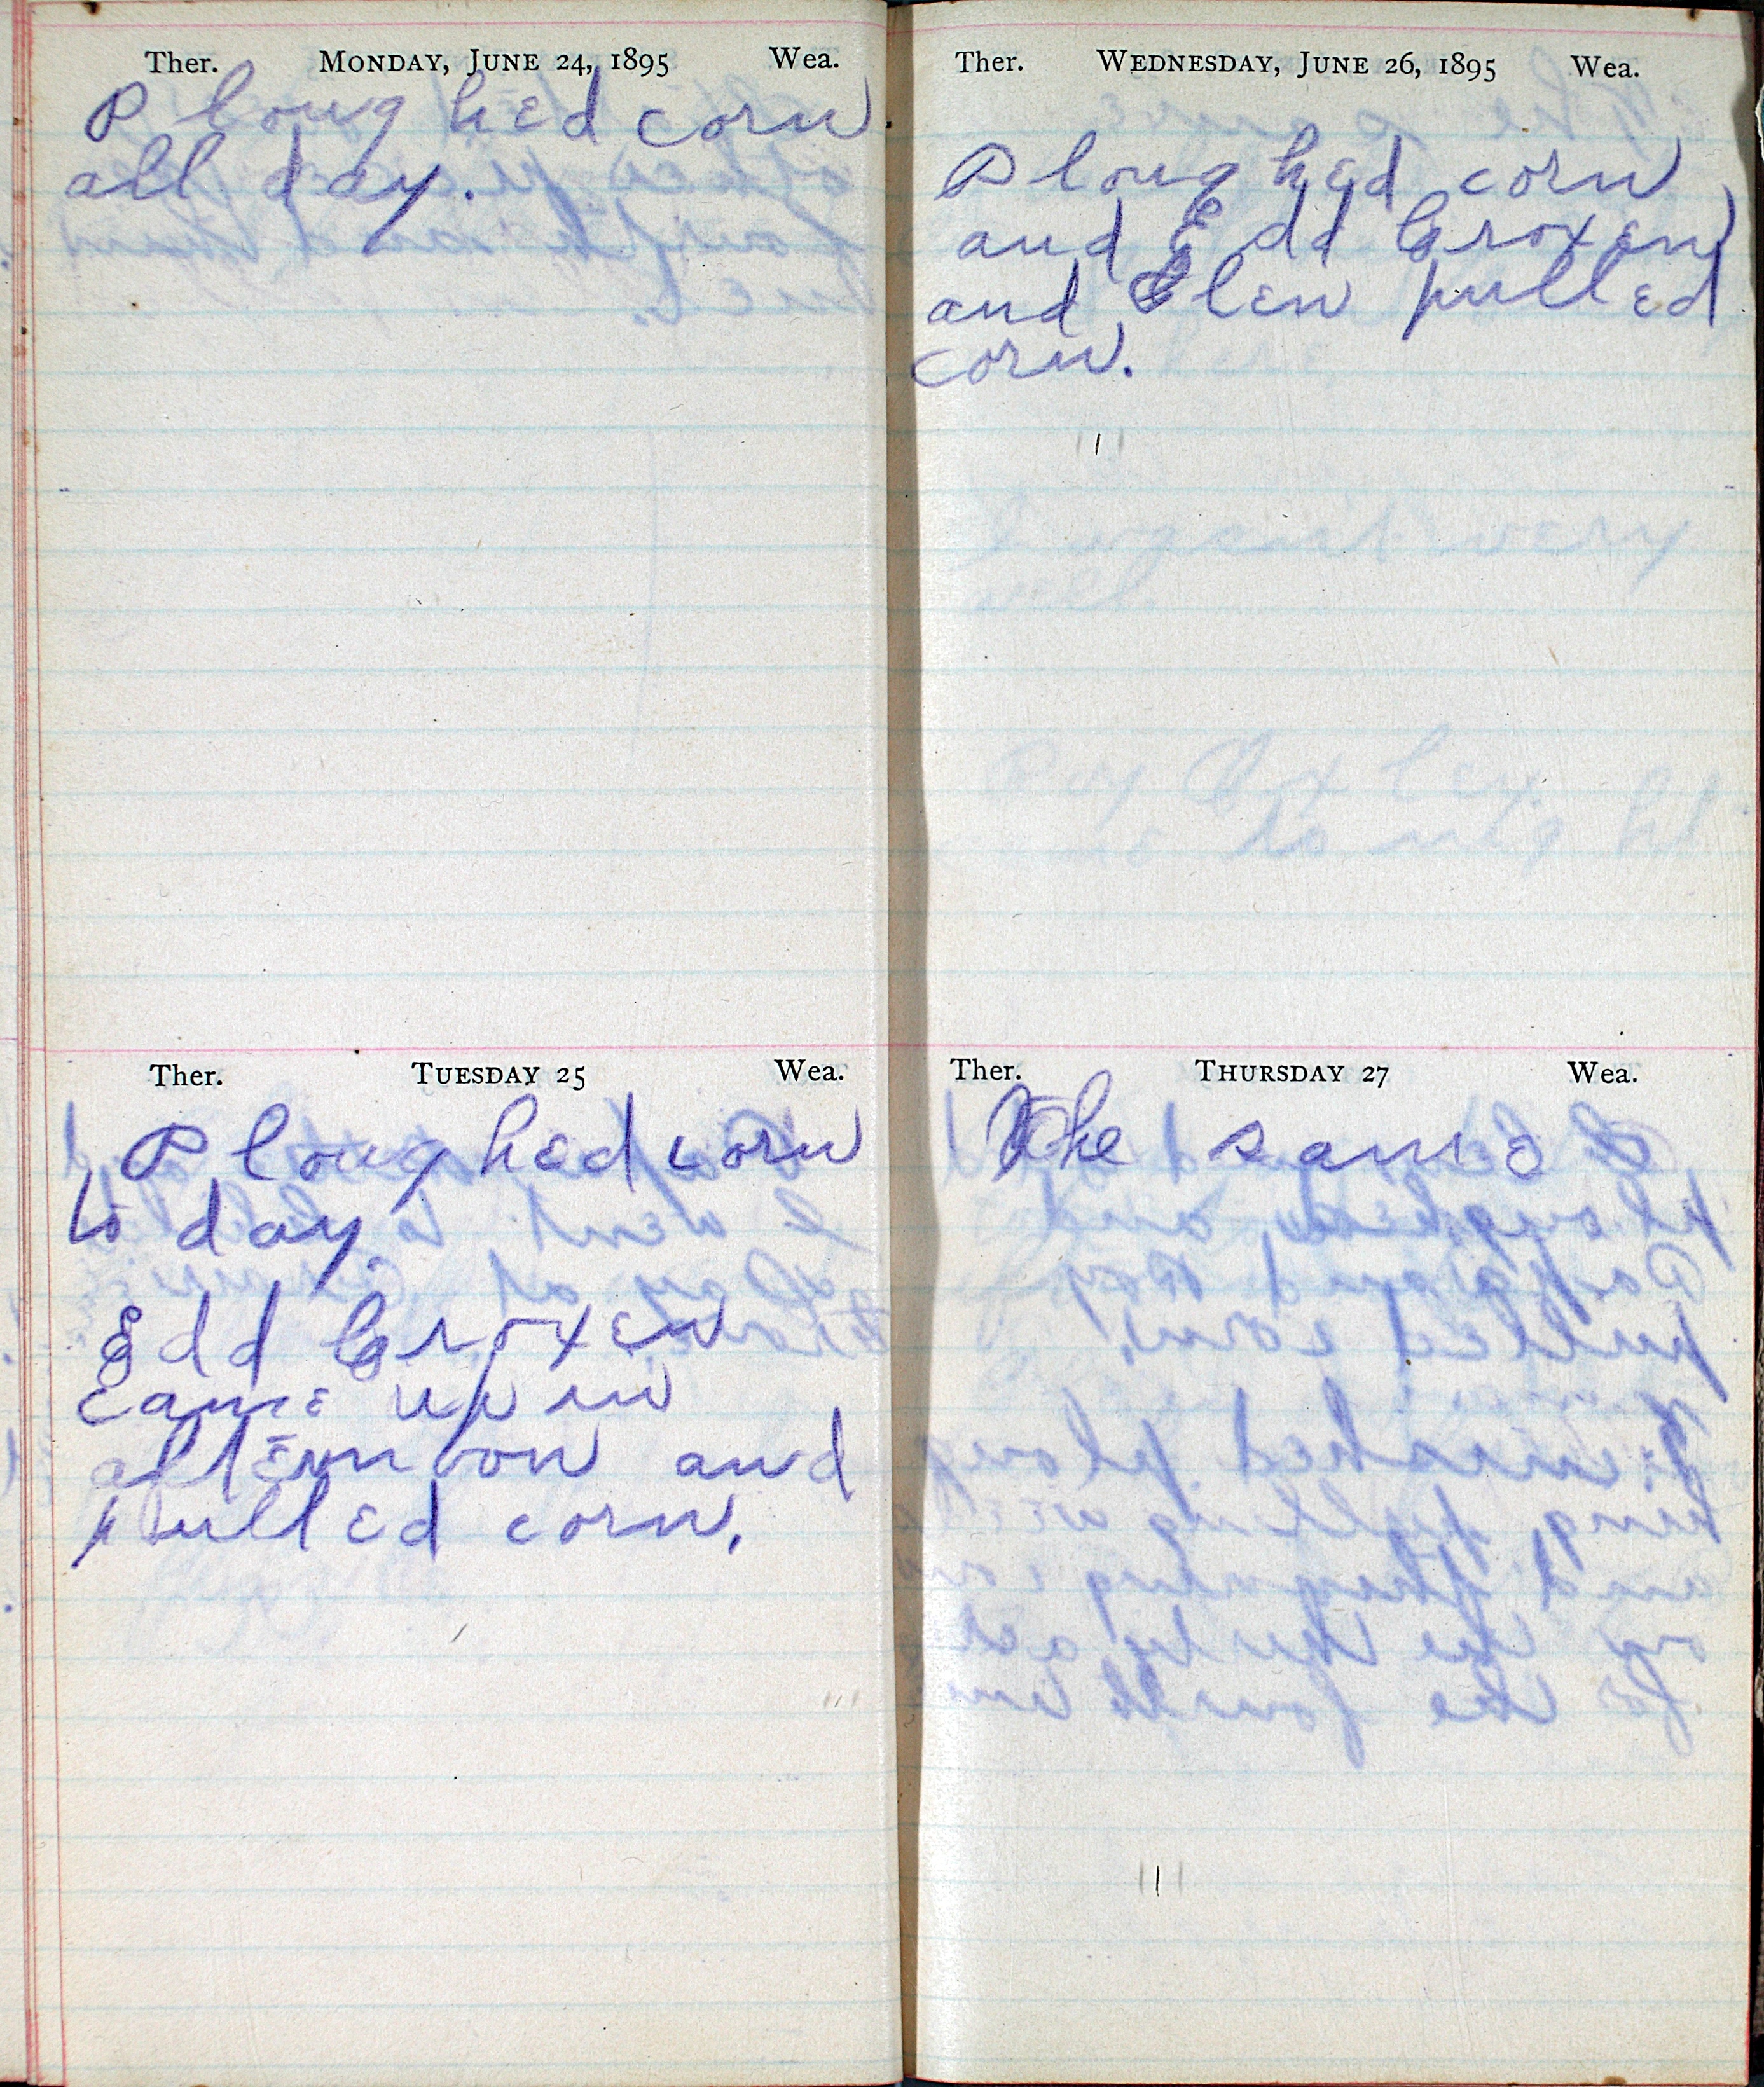 Ther. MONDAY, JUNE 24, 1895 Wea.
Ploughed corn
all day.
Ther. TUESDAY 25 Wea.
Ploughed corn
to day.
Edd Croxen
came up in
afternoon and
pulled corn.
Ther. WEDNESDAY, JUNE 26, 1895 Wea.
Ploughed corn
and Edd Croxen
and Glen pulled
corn.
Ther. THURSDAY 27 Wea.
The same